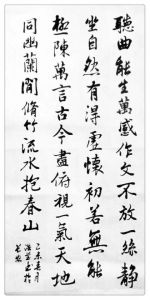 聽曲能生萬感作文不放一絲靜
坐自然有得虛懷初若無能
極陳萬言古今盡俯視一氣天地
同幽蘭閒脩竹流水抱春山